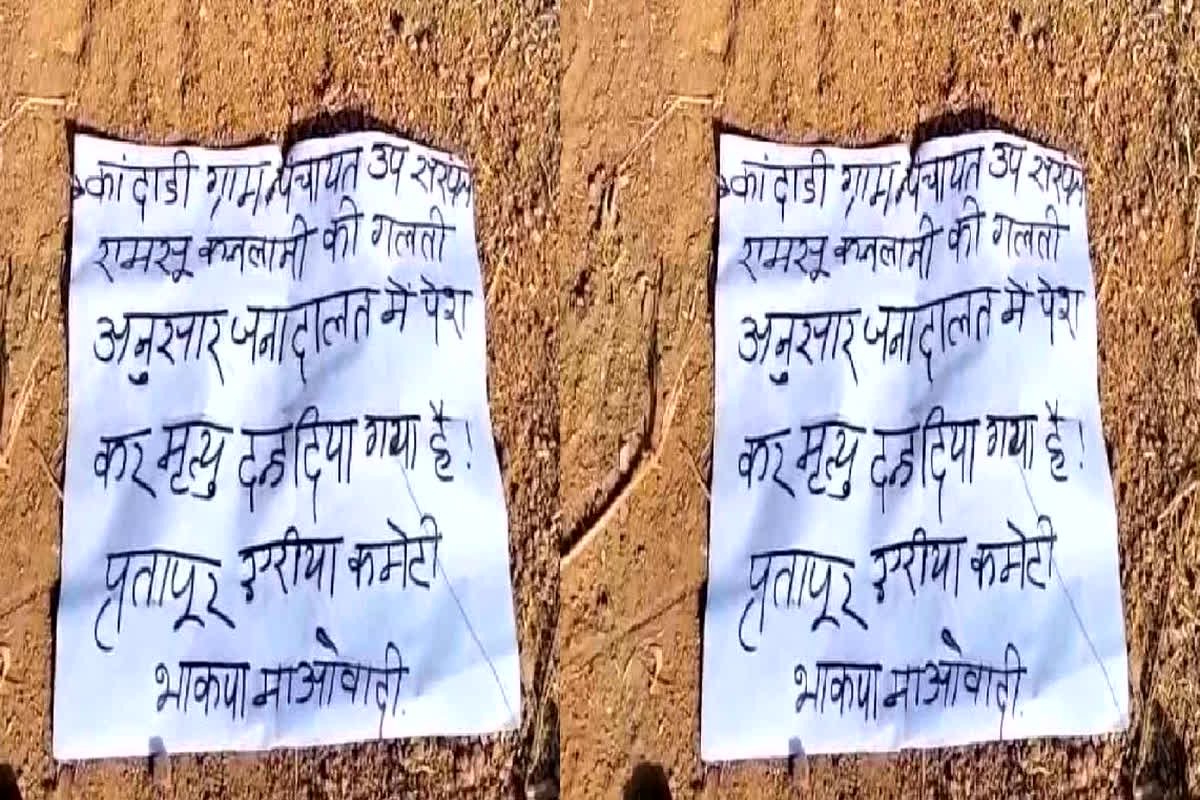 कांदाडी ग्राम पंचायत उप सरपंच
रामसू कचलामी की गलती
अनुसार जनादालत में पेश
कर मृत्यु दन्ड दिया गया है!
प्रतापूर एरीया कमेटी
भाकपा माओवादी.
कांदाडी ग्राम पंचायत उप सरपंच
रामसू कचलामी की गलती
अनुसार जनादालत में पेश
कर मृत्यु दन्ड दिया गया है!
प्रतापूर एरीया कमेटी
भाकपा माओवादी.